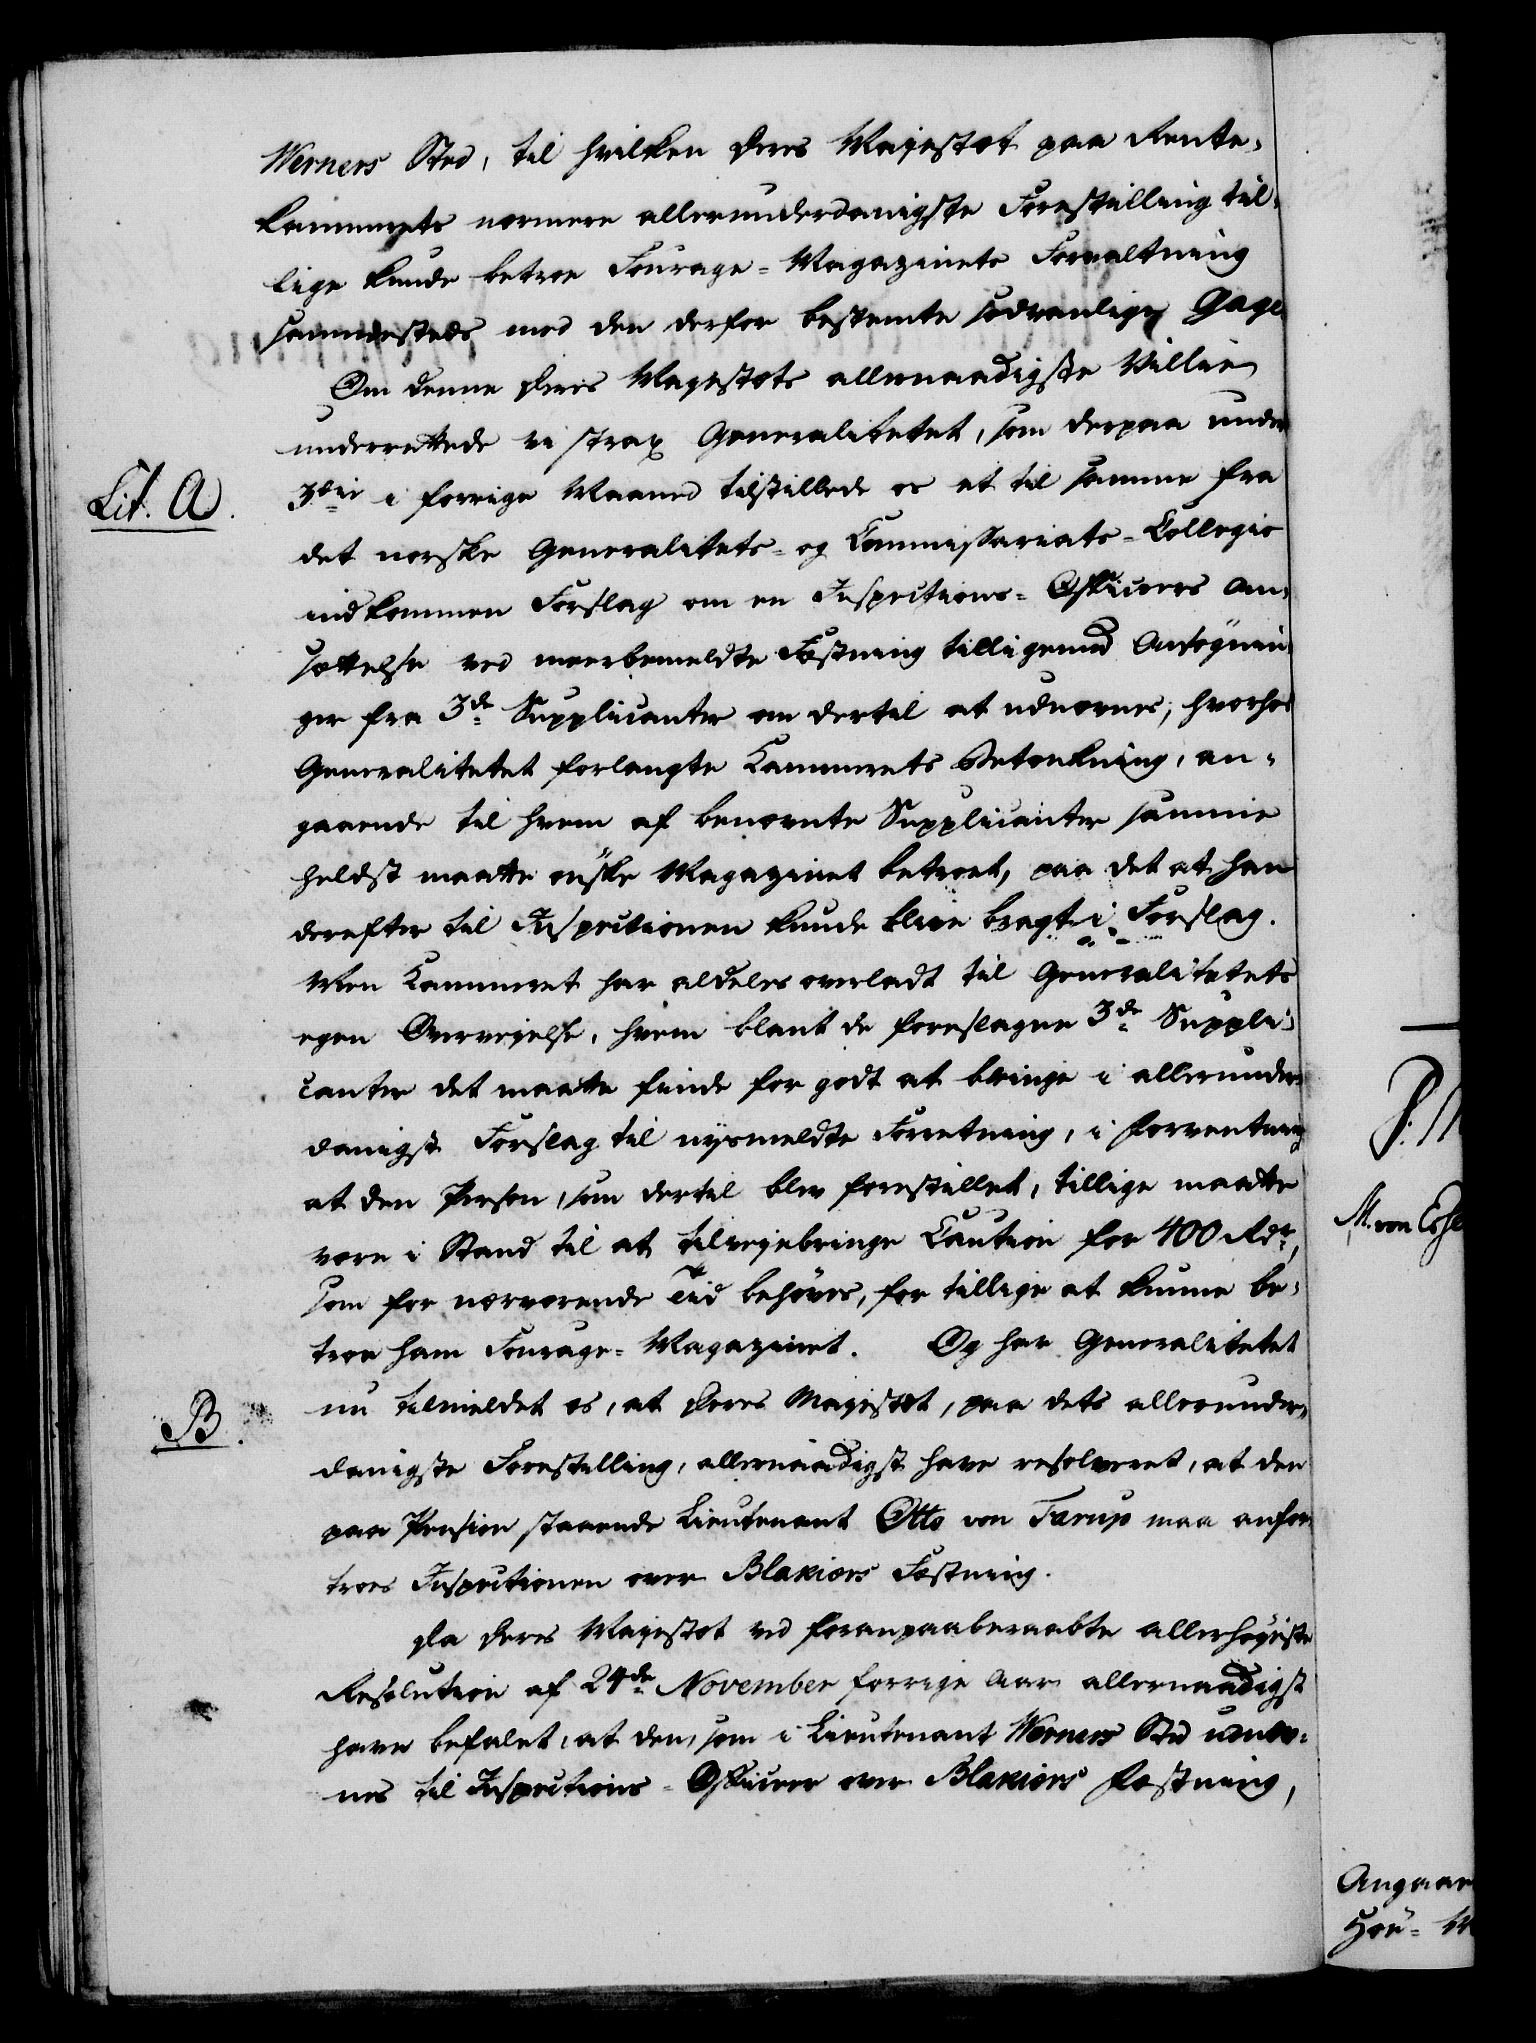 Werners Sted, til hvilken Deres Majestæt paa Rente-
kammerets nærmere allerunderdanigste Forestilling til-
lige kunde betroe Fourage-Magazinets Forvaltning
sammesteds med den derfor bestemte sædvanlige Gage
Om denne Deres Majestæts allernaadigste Villie
underrettede vi strax Generalitetet, som derpaa under
Lit. A.
3die i forrige Maaned tilstillede os et til samme fra
det norske Generalitets- og Commissariats-Collegio
indkommen Forslag om en Inspections-Officeers An-
sættelse ved meerbemeldte Fæstning tilligemed Ansøgnin-
ger fra 3de Supplicanter om dertil at udnævnes; hvorhos
Generalitetet forlangte Kammerets Betænkning, an-
gaaende til hvem af benævnte Supplicanter samme
heldst maatte ønske Magazinet betroet, paa det at han
derefter til Inspectionen kunde blive bragt i Forslag.
Men Kammeret har aldeles overladt til Generalitetets
egen Overvejelse, hvem blant de foreslagne 3de Suppli-
canter det maatte finde for godt at bringe i allerunder-
danigst Forslag til nysmeldte Forretning, i Forventning
at den Person, som dertil blev forestillet, tillige maatte
være i Stand til at tilvejebringe Caution for 400 Rdr,
som for nærværende Tid behøves, for tillige at kunne be-
troe ham Fourage-Magazinet. Og har Generalitetet
B.
nu tilmeldet os, at Deres Majestæt, paa dets allerunder-
danigste Forestilling, allernaadigst have resolveret, at den
paa Pension staaende Lieutenant Otto von Tarup maa anfor-
troes Inspectionen over Blakiers Fæstning.
Da Deres Majestæt ved foranpaaberaabte allerhøjeste
Resolution af 24de November forrige Aar allernaadigst
have befalet, at den, som i Lieutenant Werners Sted udnæv-
nes til Inspections-Officeer over Blakiers Fæstning,
M. von
Angaae